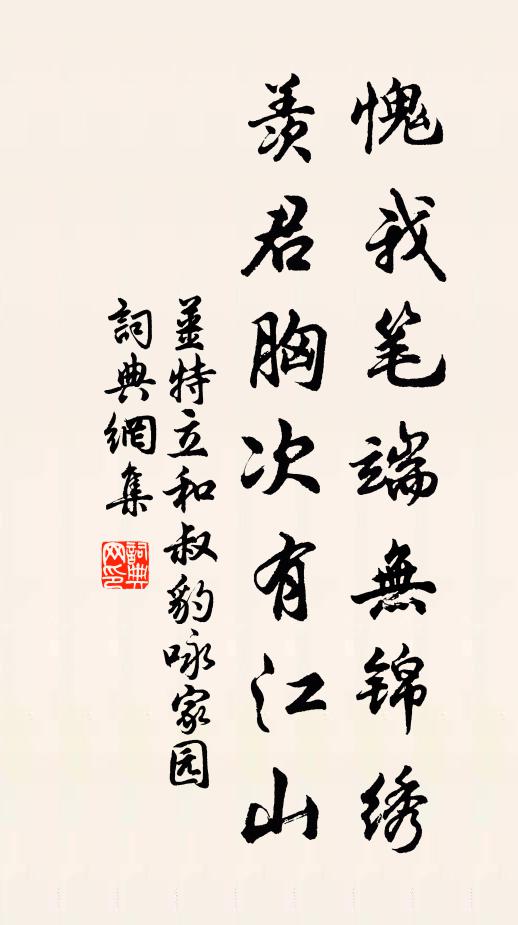 愧我笔端無锦绣
羡君胸次有江山
薑特立和叔豹咏家园
詞典網集
詞典网印